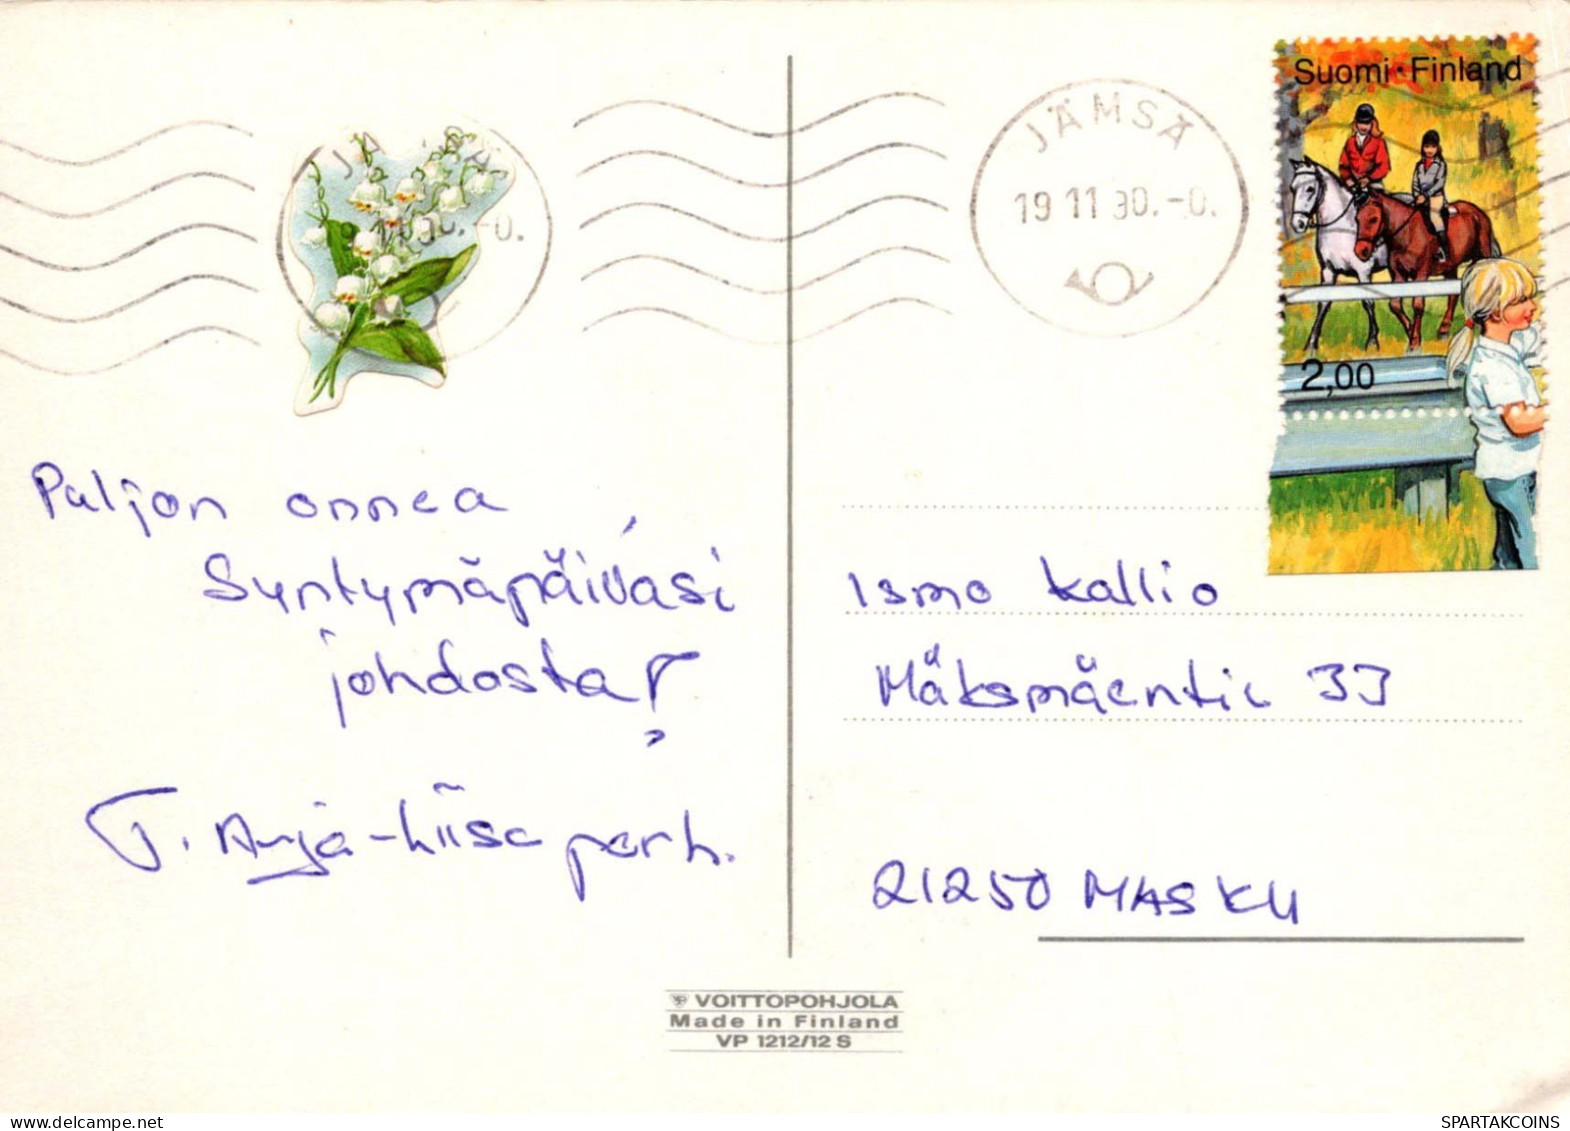 Suomi · Finland
2,00
JÄMSÄ
19 11 90.-0.
Paljon onnea
Syntymäpäiväsi
johdosta!
T. Anja-Liisa perh.
Ismo Kallio
Mäksmäentie 33
21250 MASKU
VOITTOPOHJOLA
Made in Finland
VP 1212/12 S
www.delcampe.net
SPARTAKCOINS